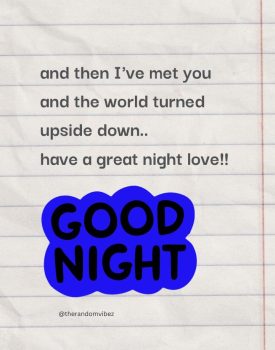 and then I've met you
and the world turned
upside down..
have a great night love!!
GOOD
NIGHT
@therandomvibez